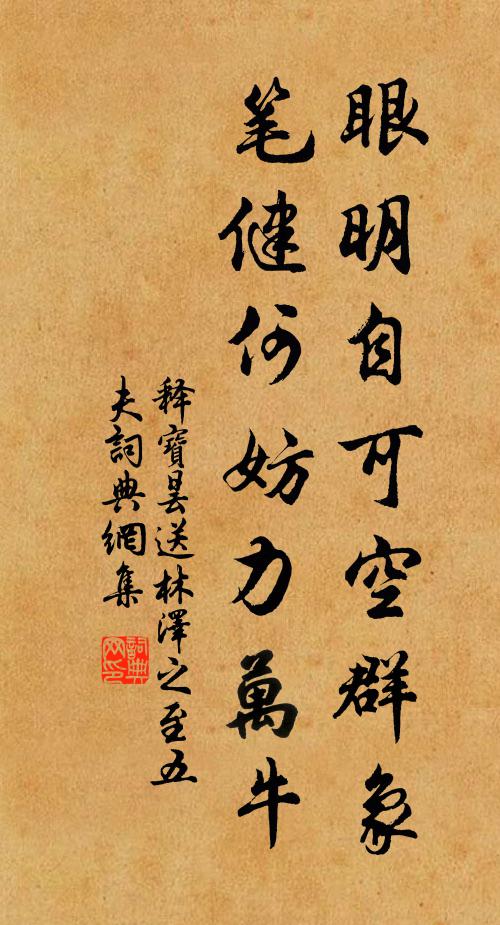 眼明自可空群象
笔健何妨力萬牛
释寶曇送林澤之至五
夫詞典網集
詞典
网印